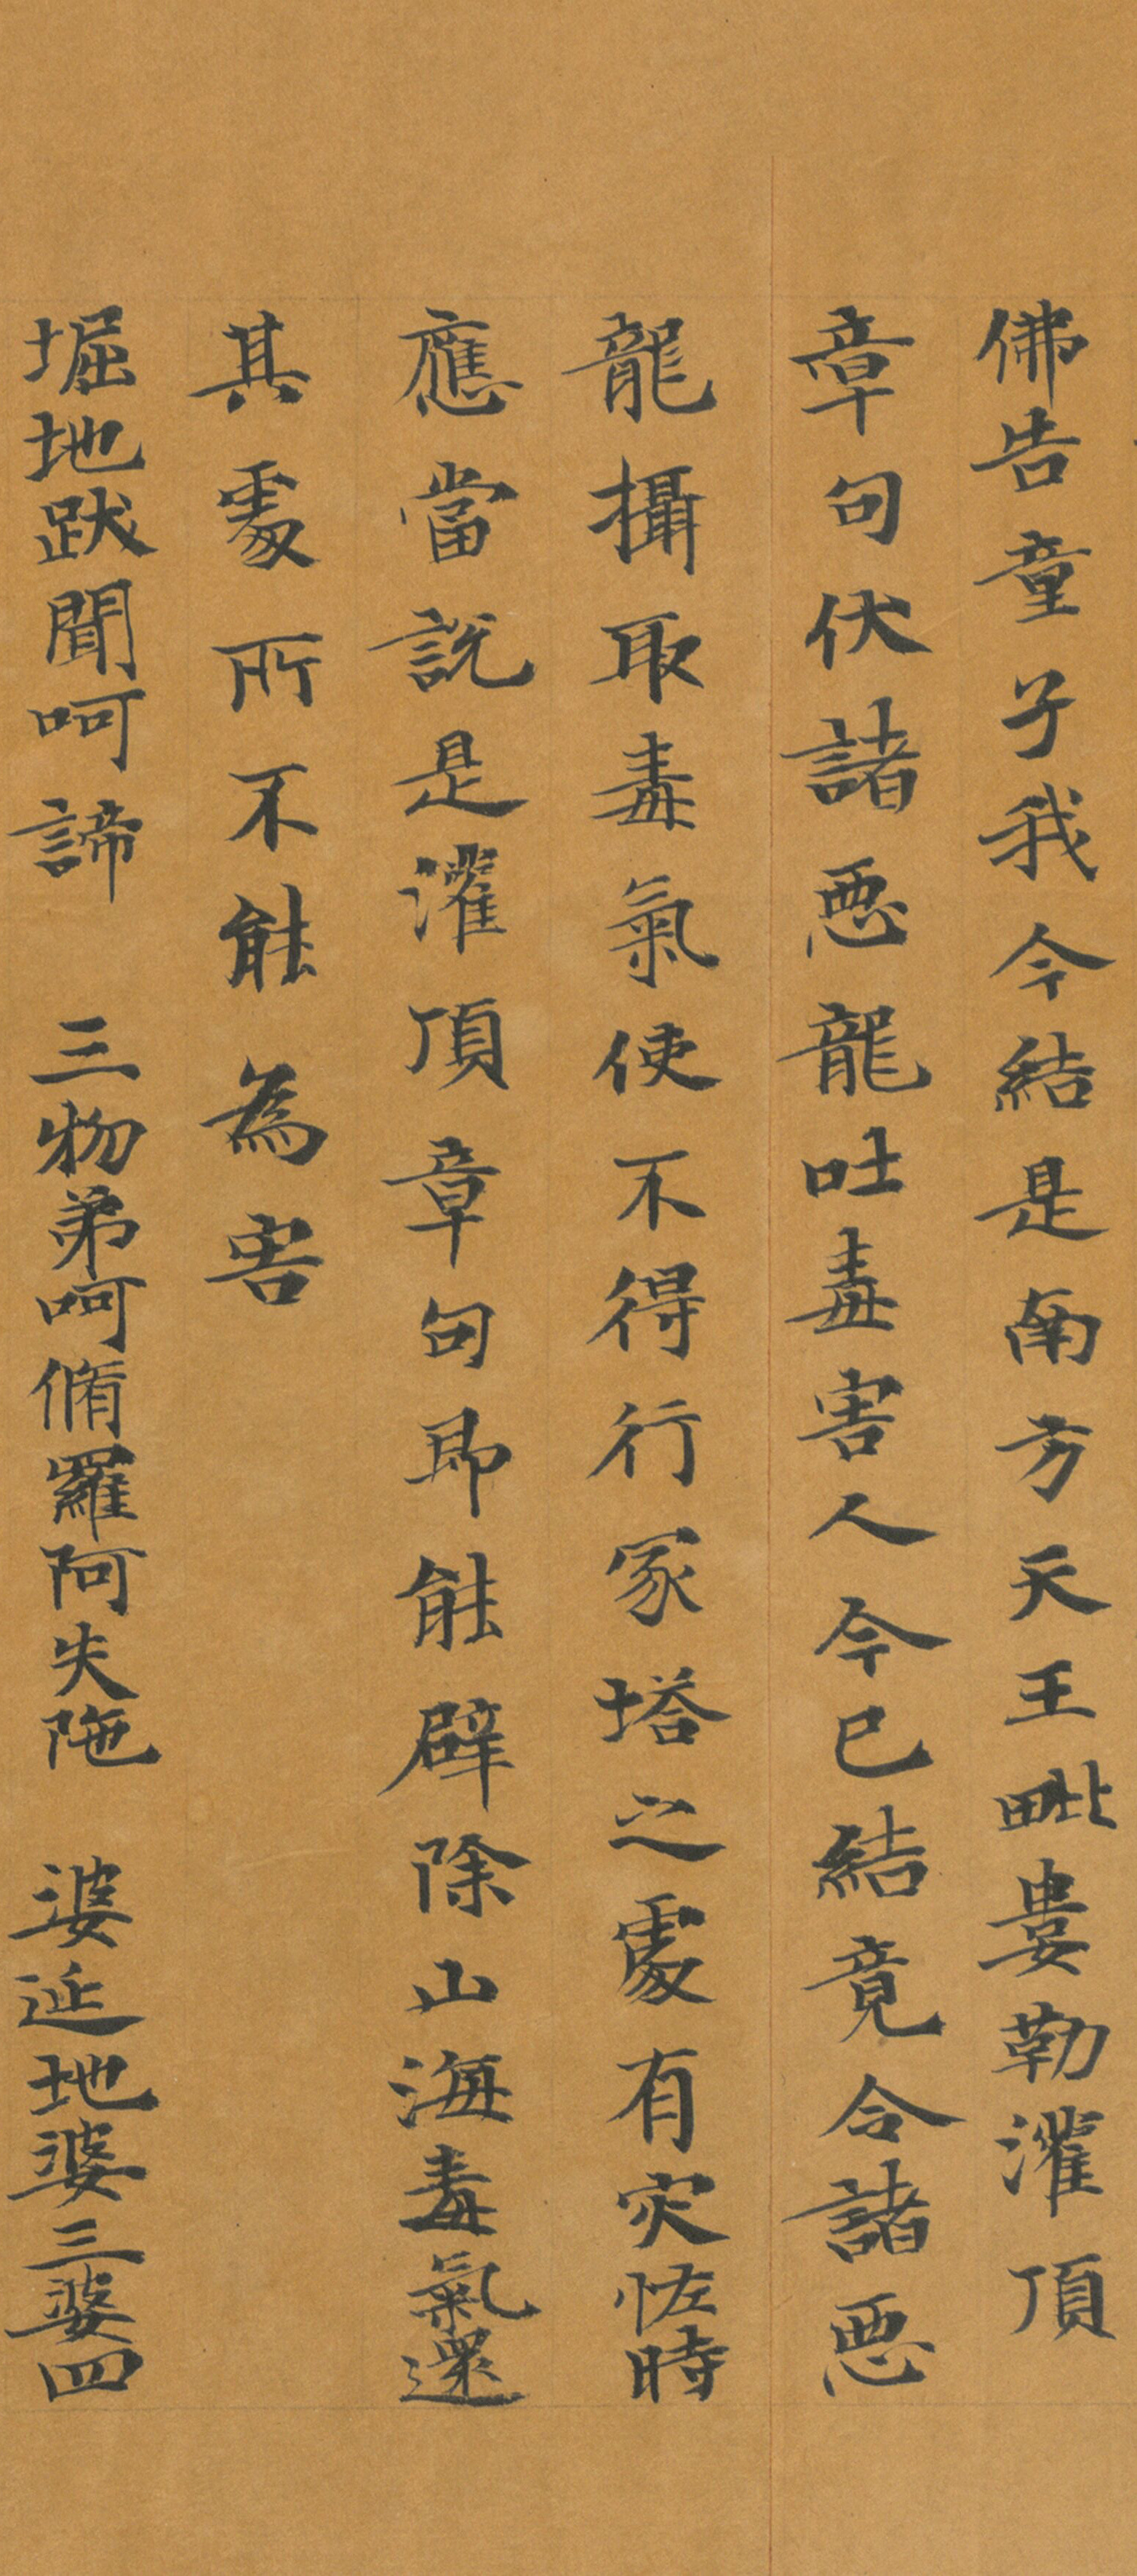 佛告童子我今結是南方天王毗婁勒灌頂
章句伏諸惡龍吐毒害人今已結竟令諸惡
龍攝取毒氣使不得行冢塔之處有灾恠時
應當說是灌頂章句即能辟除山海毒氣還
其處所不能為害
堀地跋聞呵諦　三物弟呵脩羅阿失陁　婆延地婆三婆四